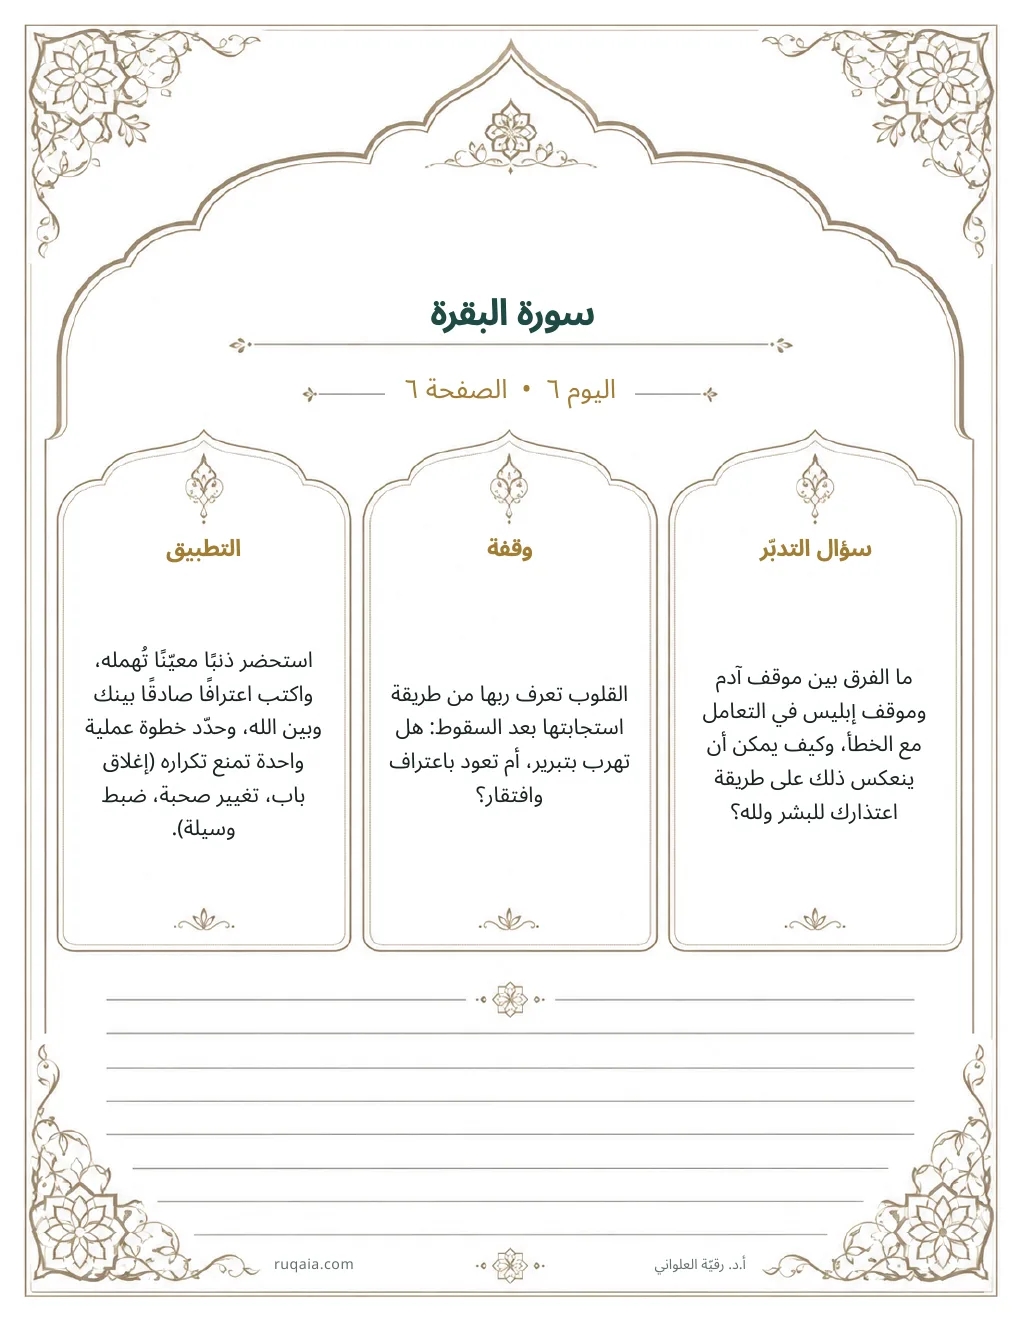 سورة البقرة
اليوم ٦ • الصفحة ٦
سؤال التدبّر
ما الفرق بين موقف آدم
وموقف إبليس في التعامل
مع الخطأ، وكيف يمكن أن
ينعكس ذلك على طريقة
اعتذارك للبشر ولله؟
وقفة
القلوب تعرف ربها من طريقة
استجابتها بعد السقوط: هل
تهرب بتبرير، أم تعود باعتراف
وافتقار؟
التطبيق
استحضر ذنبًا معيّنًا تُهمله،
واكتب اعترافًا صادقًا بينك
وبين الله، وحدّد خطوة عملية
واحدة تمنع تكراره (إغلاق
باب، تغيير صحبة، ضبط
وسيلة).
أ.د. رقيّة العلواني
ruqaia.com